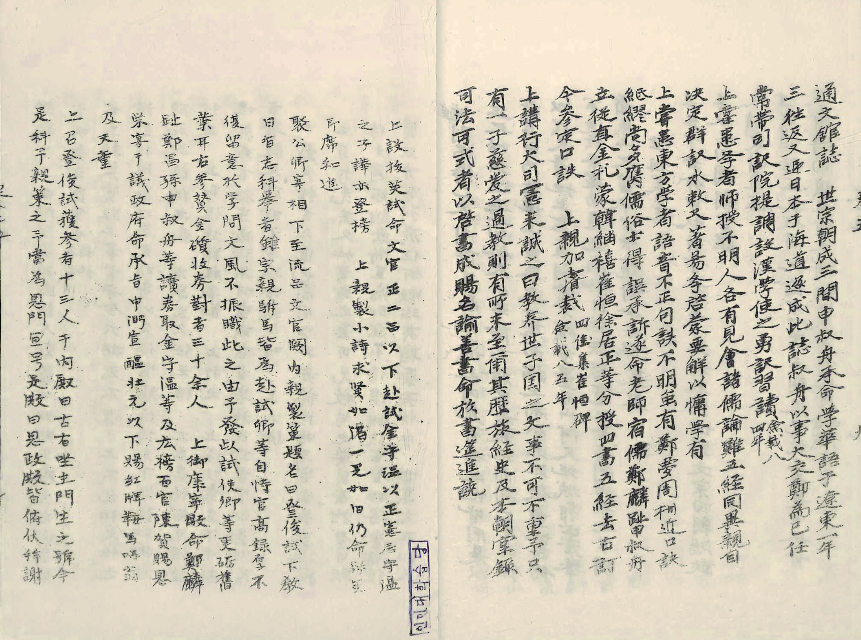 通文館誌 世宗朝成三問申叔舟承命學華語于遼東一年
三往返又迎日本于海道遂成此誌叔舟以事大交鄰爲己任
常帶司譯院提調設漢學使之勇譯習讀 八四年
上嘗患學者師授不明人各有見會諸儒論難五經同異親自
決定群訳水釈又著易學啓蒙要解以慵學有
上嘗患東方學者語音不正句讀不明雖有鄭夢周 近口訣
紕繆尚多腐儒俗士得誤承訴遂命老師宿儒鄭麟趾申叔舟
丘從直金礼蒙韓繼禧崔恒徐居正等分授四書五經去古訂
今參定口訣 上親加睿裁 四佳集崔恒碑 八五年
上講行大司憲 誠之曰教養世子国之大事不可不重予只
有一子慈愛之過教則有所未至爾其歴於經史及 嗣
可法可式者以啓書成賜名諭善書命於書筵進說
上設拔英試命文官正二品以下赴試金守溫以正憲 守溫
之子諱亦登榜 上親製小詩求賢如渴一見如旧仍命
即席和進
聚公卿宰相下至流品文官闕内親製策題名曰登俊試下教
曰有志科學者雖宗親駙馬皆爲赴試卿等自恃官高錄厚不
復留意於學問文風不振職此之由予發此試使卿等更礪舊
業耳右參賛金礥收券對者三十余人 上御康寧殿命鄭麟
趾鄭昌孫申叔舟等讀券取金守溫等及広榜百官陳賀賜恩
榮宴于議政府命承旨申㴐宣醞壮元以下賜紅牌鞍馬
及天童
上召登俊試獲參者十三人于内殿曰古有坐主門生之號今
是科予親策之予當爲恩門宣号是殿曰恩政殿皆俯伏稱謝
인민대학습당